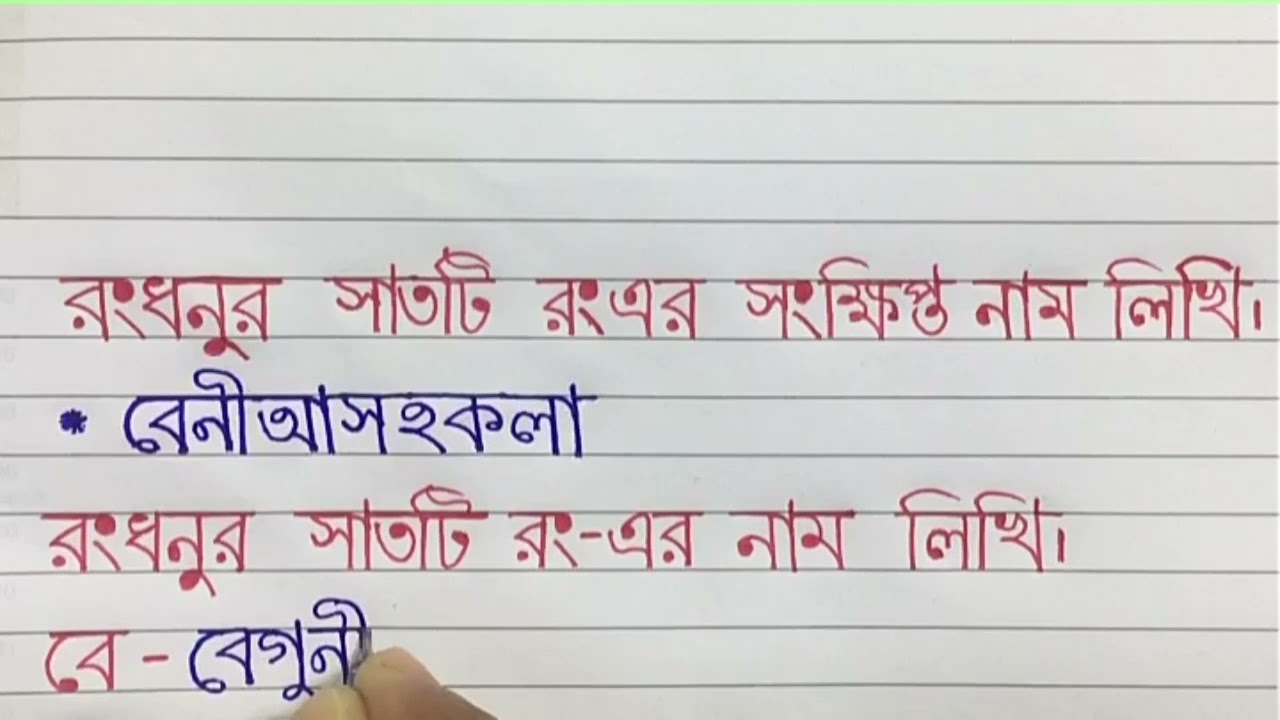 রংধনুর সাতটি রংএর সংক্ষিপ্ত নাম লিখি।
* বেনীআসহকলা
রংধনুর সাতটি রং-এর নাম লিখি।
বে - বেগুনী